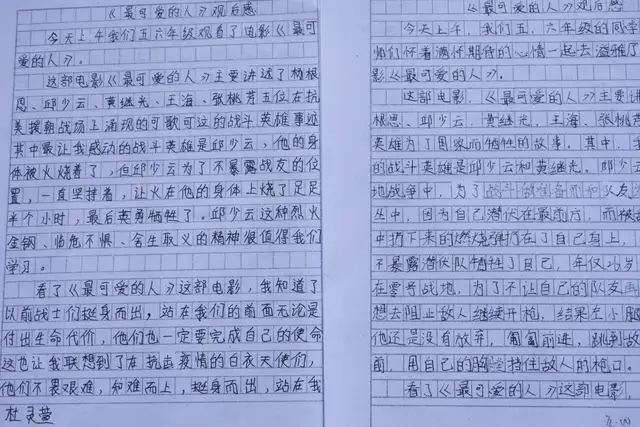 《最可爱的人》观后感
今天上午我们五六年级观看了电影《最可
爱的人》。
这部电影《最可爱的人》主要讲述了杨根
思、邱少云、黄继光、王海、张桃芳五位在抗
美援朝战场上涌现的可歌可泣的战斗英雄事迹
其中最让我感动的战斗英雄是邱少云，他的身
体被火烧着了，但邱少云为了不暴露战友的位
置，一直坚持着，让火在他的身体上烧了足足
半个小时，最后英勇牺牲了。邱少云这种烈火
金钢、临危不惧、舍生取义的精神很值得我们
学习。
看了《最可爱的人》这部电影，我知道了
以前战士们挺身而出，站在我们的前面无论是
付出生命代价，他们也一定要完成自己的使命
这也让我联想到了在抗击疫情的白衣天使们，
他们不畏艰难，知难而上，挺身而出，站在我
杜灵萱
《最可爱的人》观后感
今天上午，我们五、六年级的同学
师们怀着满怀期待的心情一起去
影《最可爱的人》。
这部电影，《最可爱的人》主要讲
根思、邱少云，黄继光，王海，张桃芳
英雄为了国家而牺牲的故事。其中，
的战斗英雄是邱少云和黄继光。邱少云
地战争中，为了战斗做准备而和友
丛中，因为自己潜伏在最前方，而被
中扔下来的燃烧弹扔在了自己身上，
不暴露潜伏队牺牲了自己，年仅26岁
在零号战地，为了不让自己的队友
想去阻止敌人继续开枪，结果左小腿
他还是没有放弃，匍匐前进，跳到敌
前，用自己的胸堂挡住敌人的枪口。
看了《最可爱的人》这部电影，